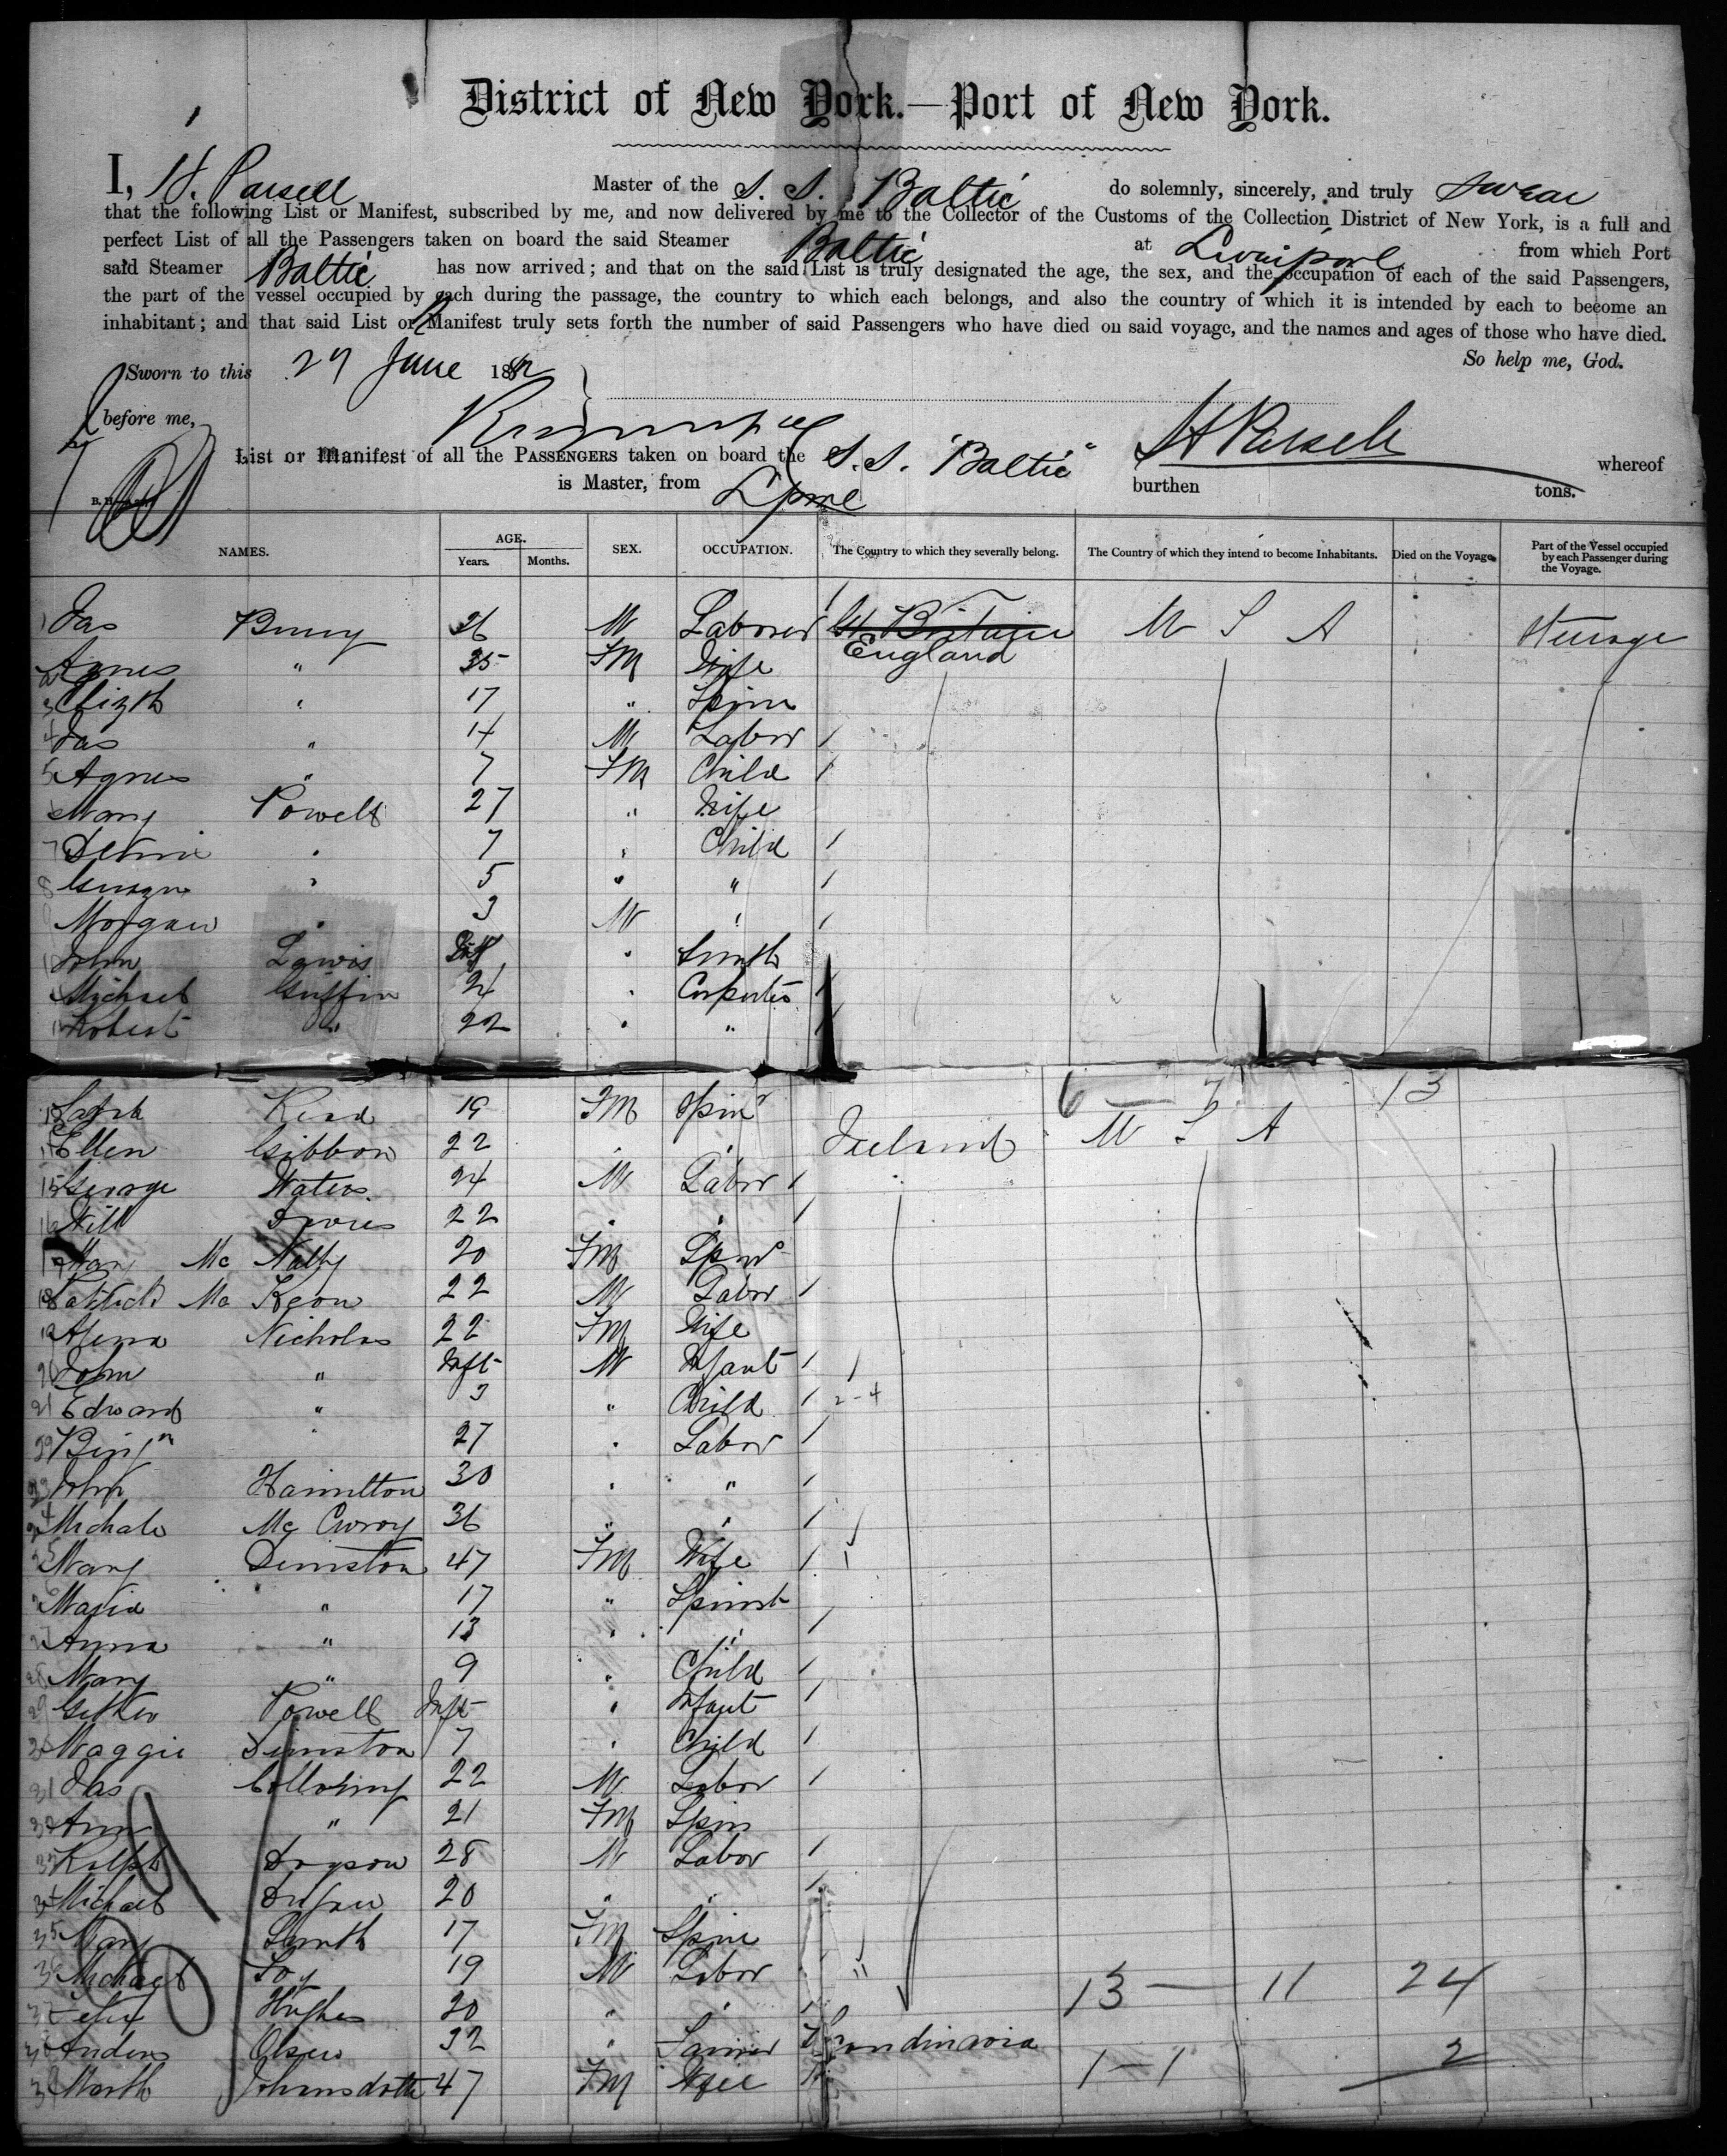 District of New York.—Port of New York.
I, H. Parsell Master of the S. S. Baltic do solemnly, sincerely, and truly swear
that the following List or Manifest, subscribed by me, and now delivered by me to the Collector of the Customs of the Collection District of New York, is a full and
perfect List of all the Passengers taken on board the said Steamer Baltic at Liverpool from which Port
said Steamer Baltic has now arrived; and that on the said List is truly designated the age, the sex, and the occupation of each of the said Passengers,
the part of the vessel occupied by each during the passage, the country to which each belongs, and also the country of which it is intended by each to become an
inhabitant; and that said List or Manifest truly sets forth the number of said Passengers who have died on said voyage, and the names and ages of those who have died.
So help me, God.
Sworn to this 27 June 188
before me,
H Parsell
List or Manifest of all the PASSENGERS taken on board the S. S. "Baltic" whereof
is Master, from Lpool burthen tons.
NAMES. AGE. Years. Months. SEX. OCCUPATION. The Country to which they severally belong. The Country of which they intend to become Inhabitants. Died on the Voyage. Part of the Vessel occupied by each Passenger during the Voyage.
1 Jas 36 M Laborer Gt Britain U S A Steerage
England
2 Agnes " 35 FM Wife
3 Elizth " 17 " Spinr
4 Jas " 14 M Labor
5 Agnes " 7 FM Child
6 Mary Powell 27 " Wife
7 " 7 " Child
8 " 5 " "
Morgan " 3 M "
John Lewis " Smith
Michael Griffin 24 "
Robert " 22 " "
13 Sarah 19 FM Spinr 6 — 7 13
14 Ellen Gibbon 22 " " Ireland U S A
15 George Waters 24 M Labor
16 Will Davies 22 " "
17 Mary Mc Nally 20 FM Spinr
18 Patrick Mc Keon 22 M Labor
19 Nicholas 22 FM Wife
20 John " Inft M Infant
21 Edward " 3 " Child 2-4
22 Benjn " 27 " Labor
23 John Hamilton 30 " "
24 Michale 36 " "
25 Mary Dunston 47 FM Wife
26 Maria " 17 " Spinst
27 Anna " 13 " "
28 Mary " 9 " Child
29 Powell Inft " Infant
30 Maggie Dunston 7 " Child
31 Jas 22 M Labor
32 Ann " 21 FM Spin
33 Ralph 28 M Labor
34 Michael 20 " "
35 Mary Smith 17 FM Spin
36 Michael Foy 19 M Labor 13 — 11 24
37 Hughes 20 " "
38 Anders Olsen 32 " Scandinavia
39 47 FM Wife 1 - 1 2